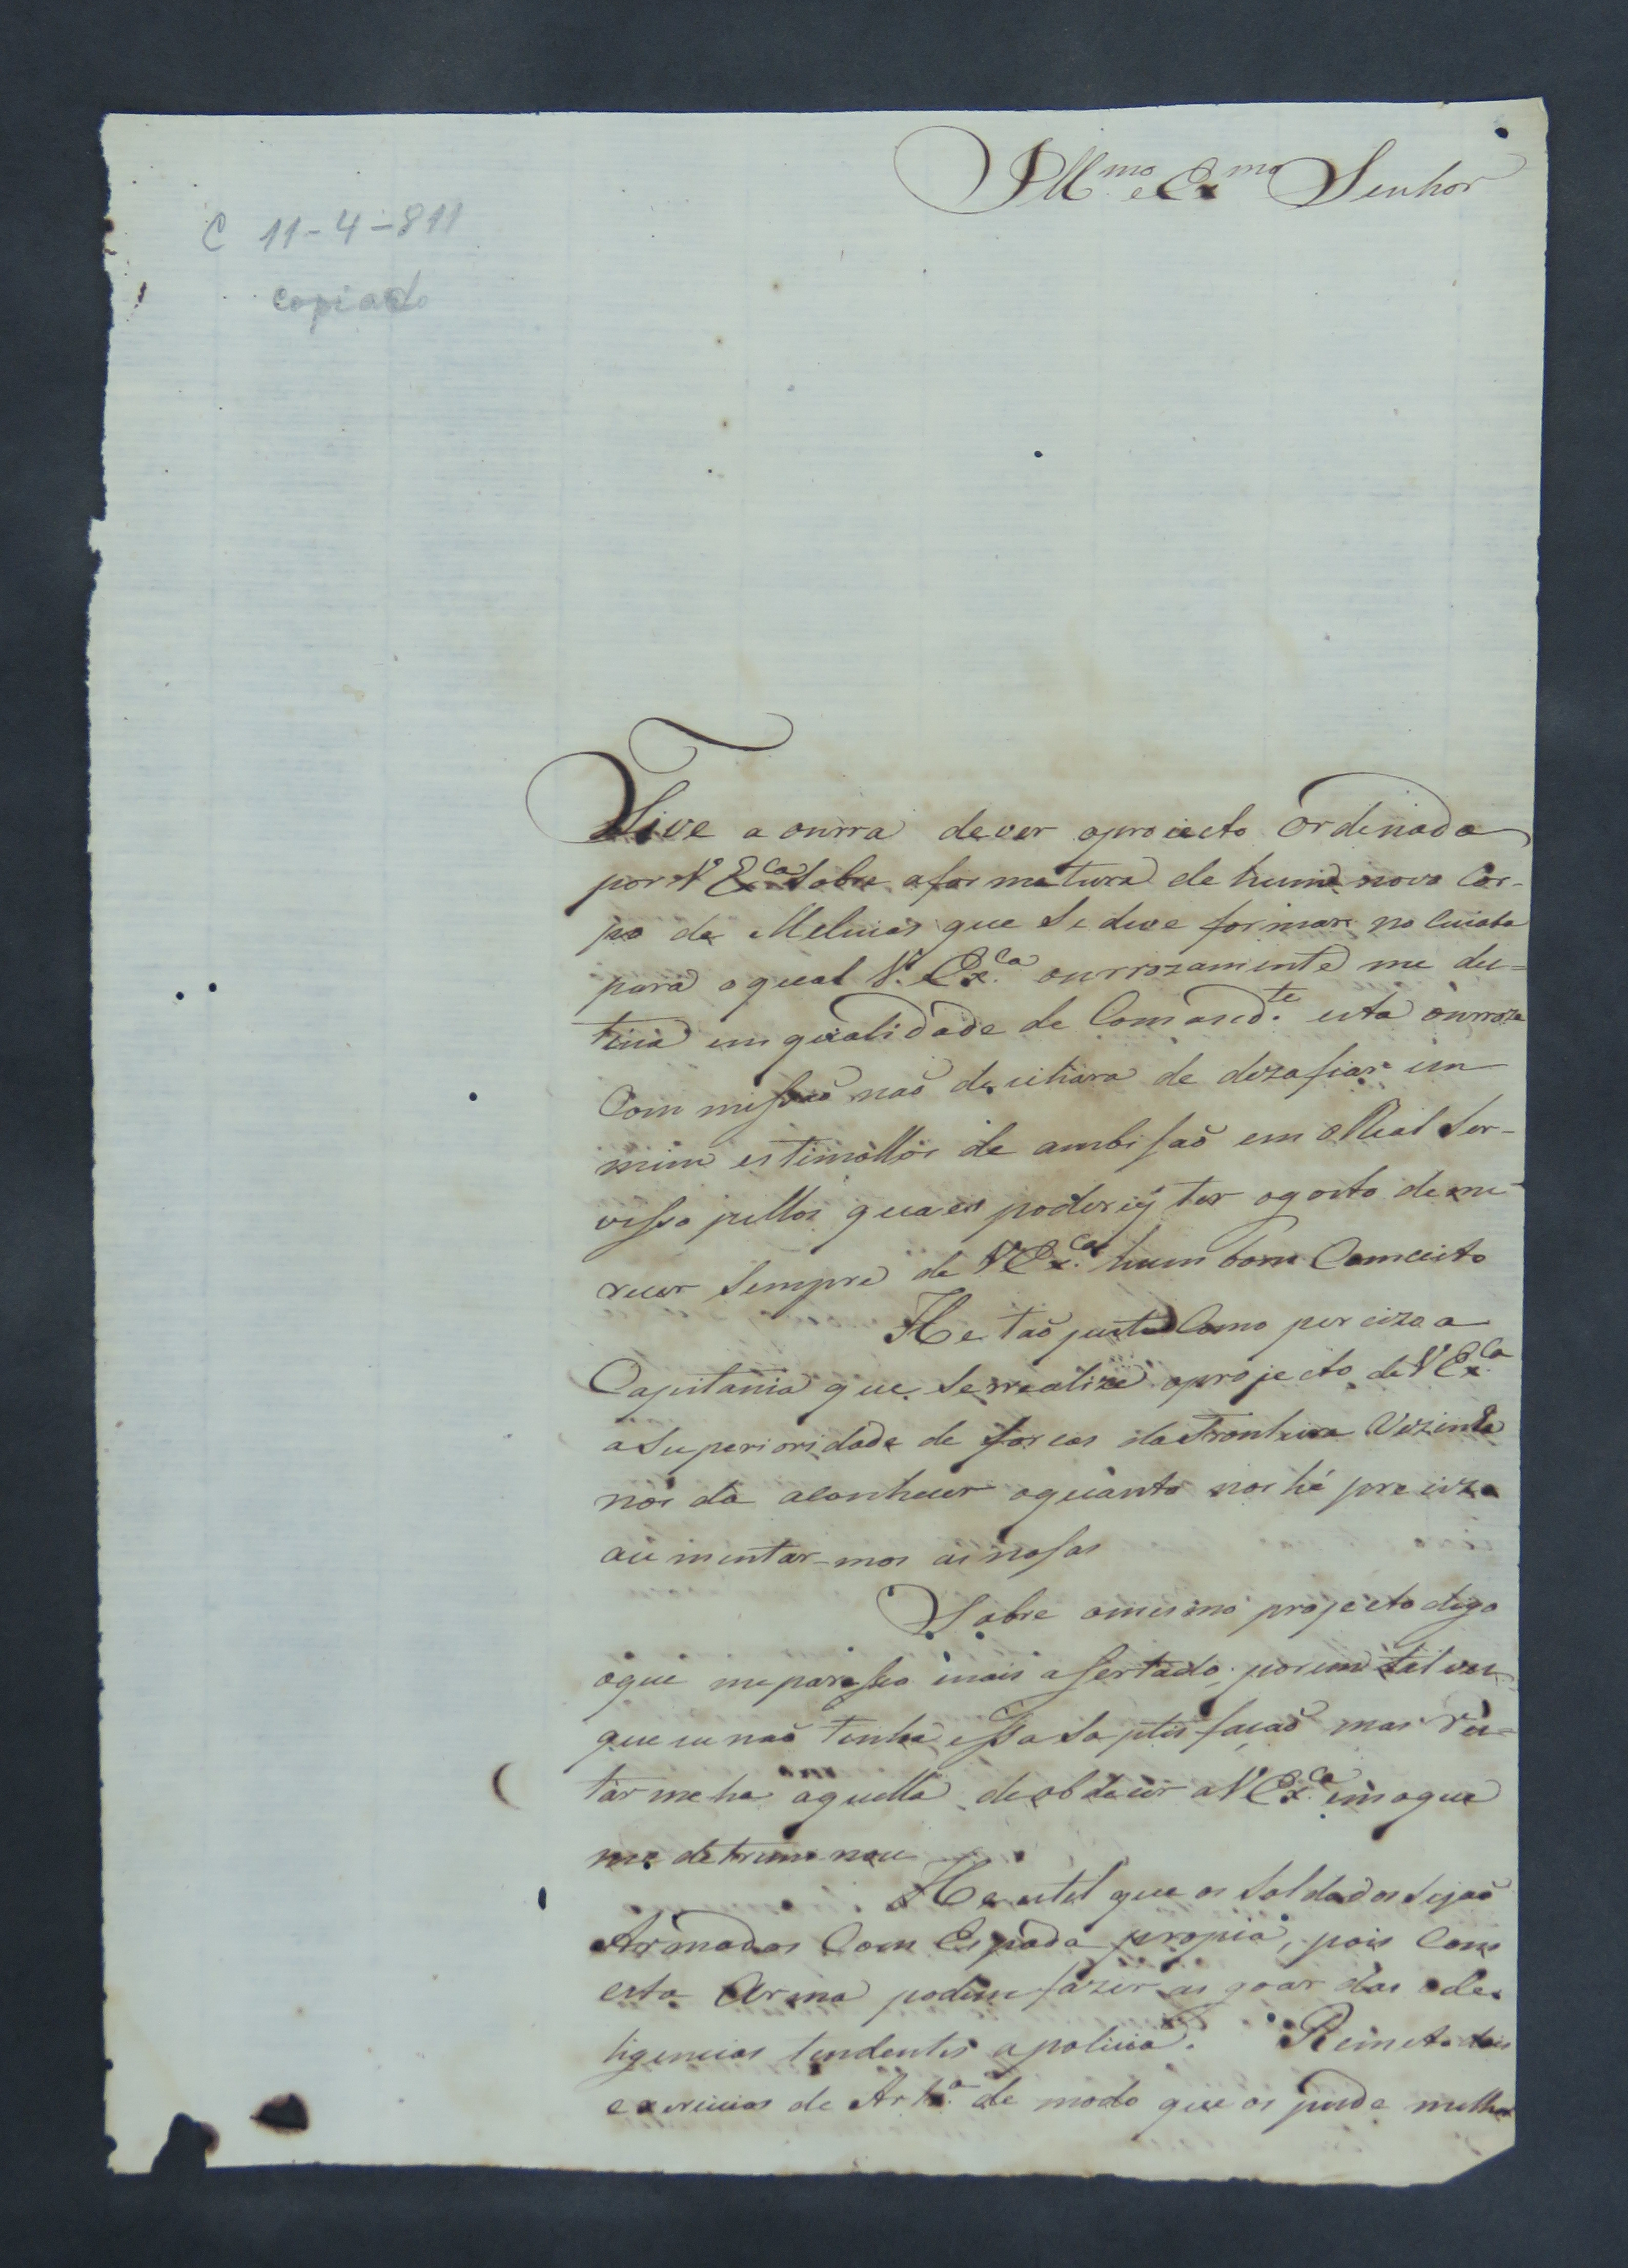 Ill^mo e Ex^mo Senhor
C 11-4-811
copiado
Tive a onrra de ver o proiecto Ordenado
por V Ex^ca Sobre a formatura de hum novo Cor-
po de Melicias que Se deve formar no Cuiaba
para o qual V. Ex.^ca onrrozamente me des=
tina em qualidade de Comand.^te esta onrroza
Commissaõ naõ deixara de dezafiar em
mim estimollos de ambisaõ em o Real Ser-
visso pellos quaes poderey ter o gosto de me-
recer Sempre de V Ex.^ca hum bom Conceito
He taõ justo Como perciza a
Capitania que Se rrealize o projecto de V Ex.^ca
a Superioridade de forças da Fronteira Vezinha
nos da a Conhecer o quanto nos hé precizo
aumentar-mos as nosas
Sobre o mesmo projecto digo
o que me paresseo mais asertado, porem talves
que eu naõ tenha essa Saptisfacaõ mas res-
tar me ha aquella de obdecer a V Ex.^ca em o que
me detreminou
He util que os Soldados Sejaõ
Armados Com Espada propia, pois Com
esta Arma podem fazer as goardas e de-
ligencias tendentes a policia. Remeto dois
exercicios de Art.^a de modo que os pude melhor